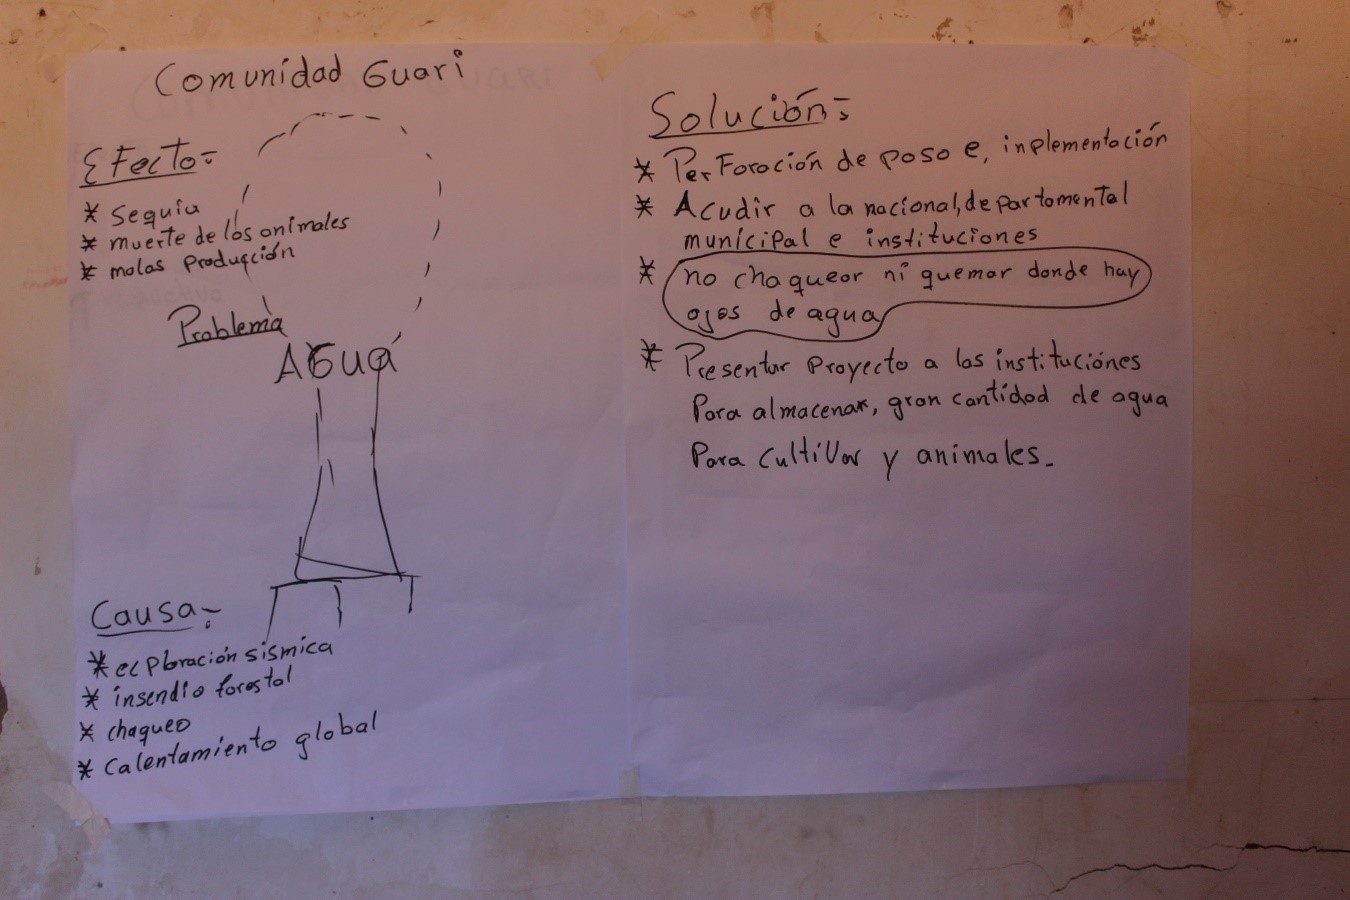 Comunidad Guari
Efecto:-
* sequia
* muerte de los animales
* malas producción
Problema
AGua
Causa:-
* ecploración sismica
* insendio forestal
* chaqueo
* Calentamiento global
Solución:-
* PerForoción de poso e, inplementación
* Acudir a la nacional, departamental
municipal e instituciones
* no chaquear ni quemar donde hay
ojos de agua
* Presentar proyecto a las institucìónes
Para almacenar, gran cantidad de agua
Para cultivar y animales.